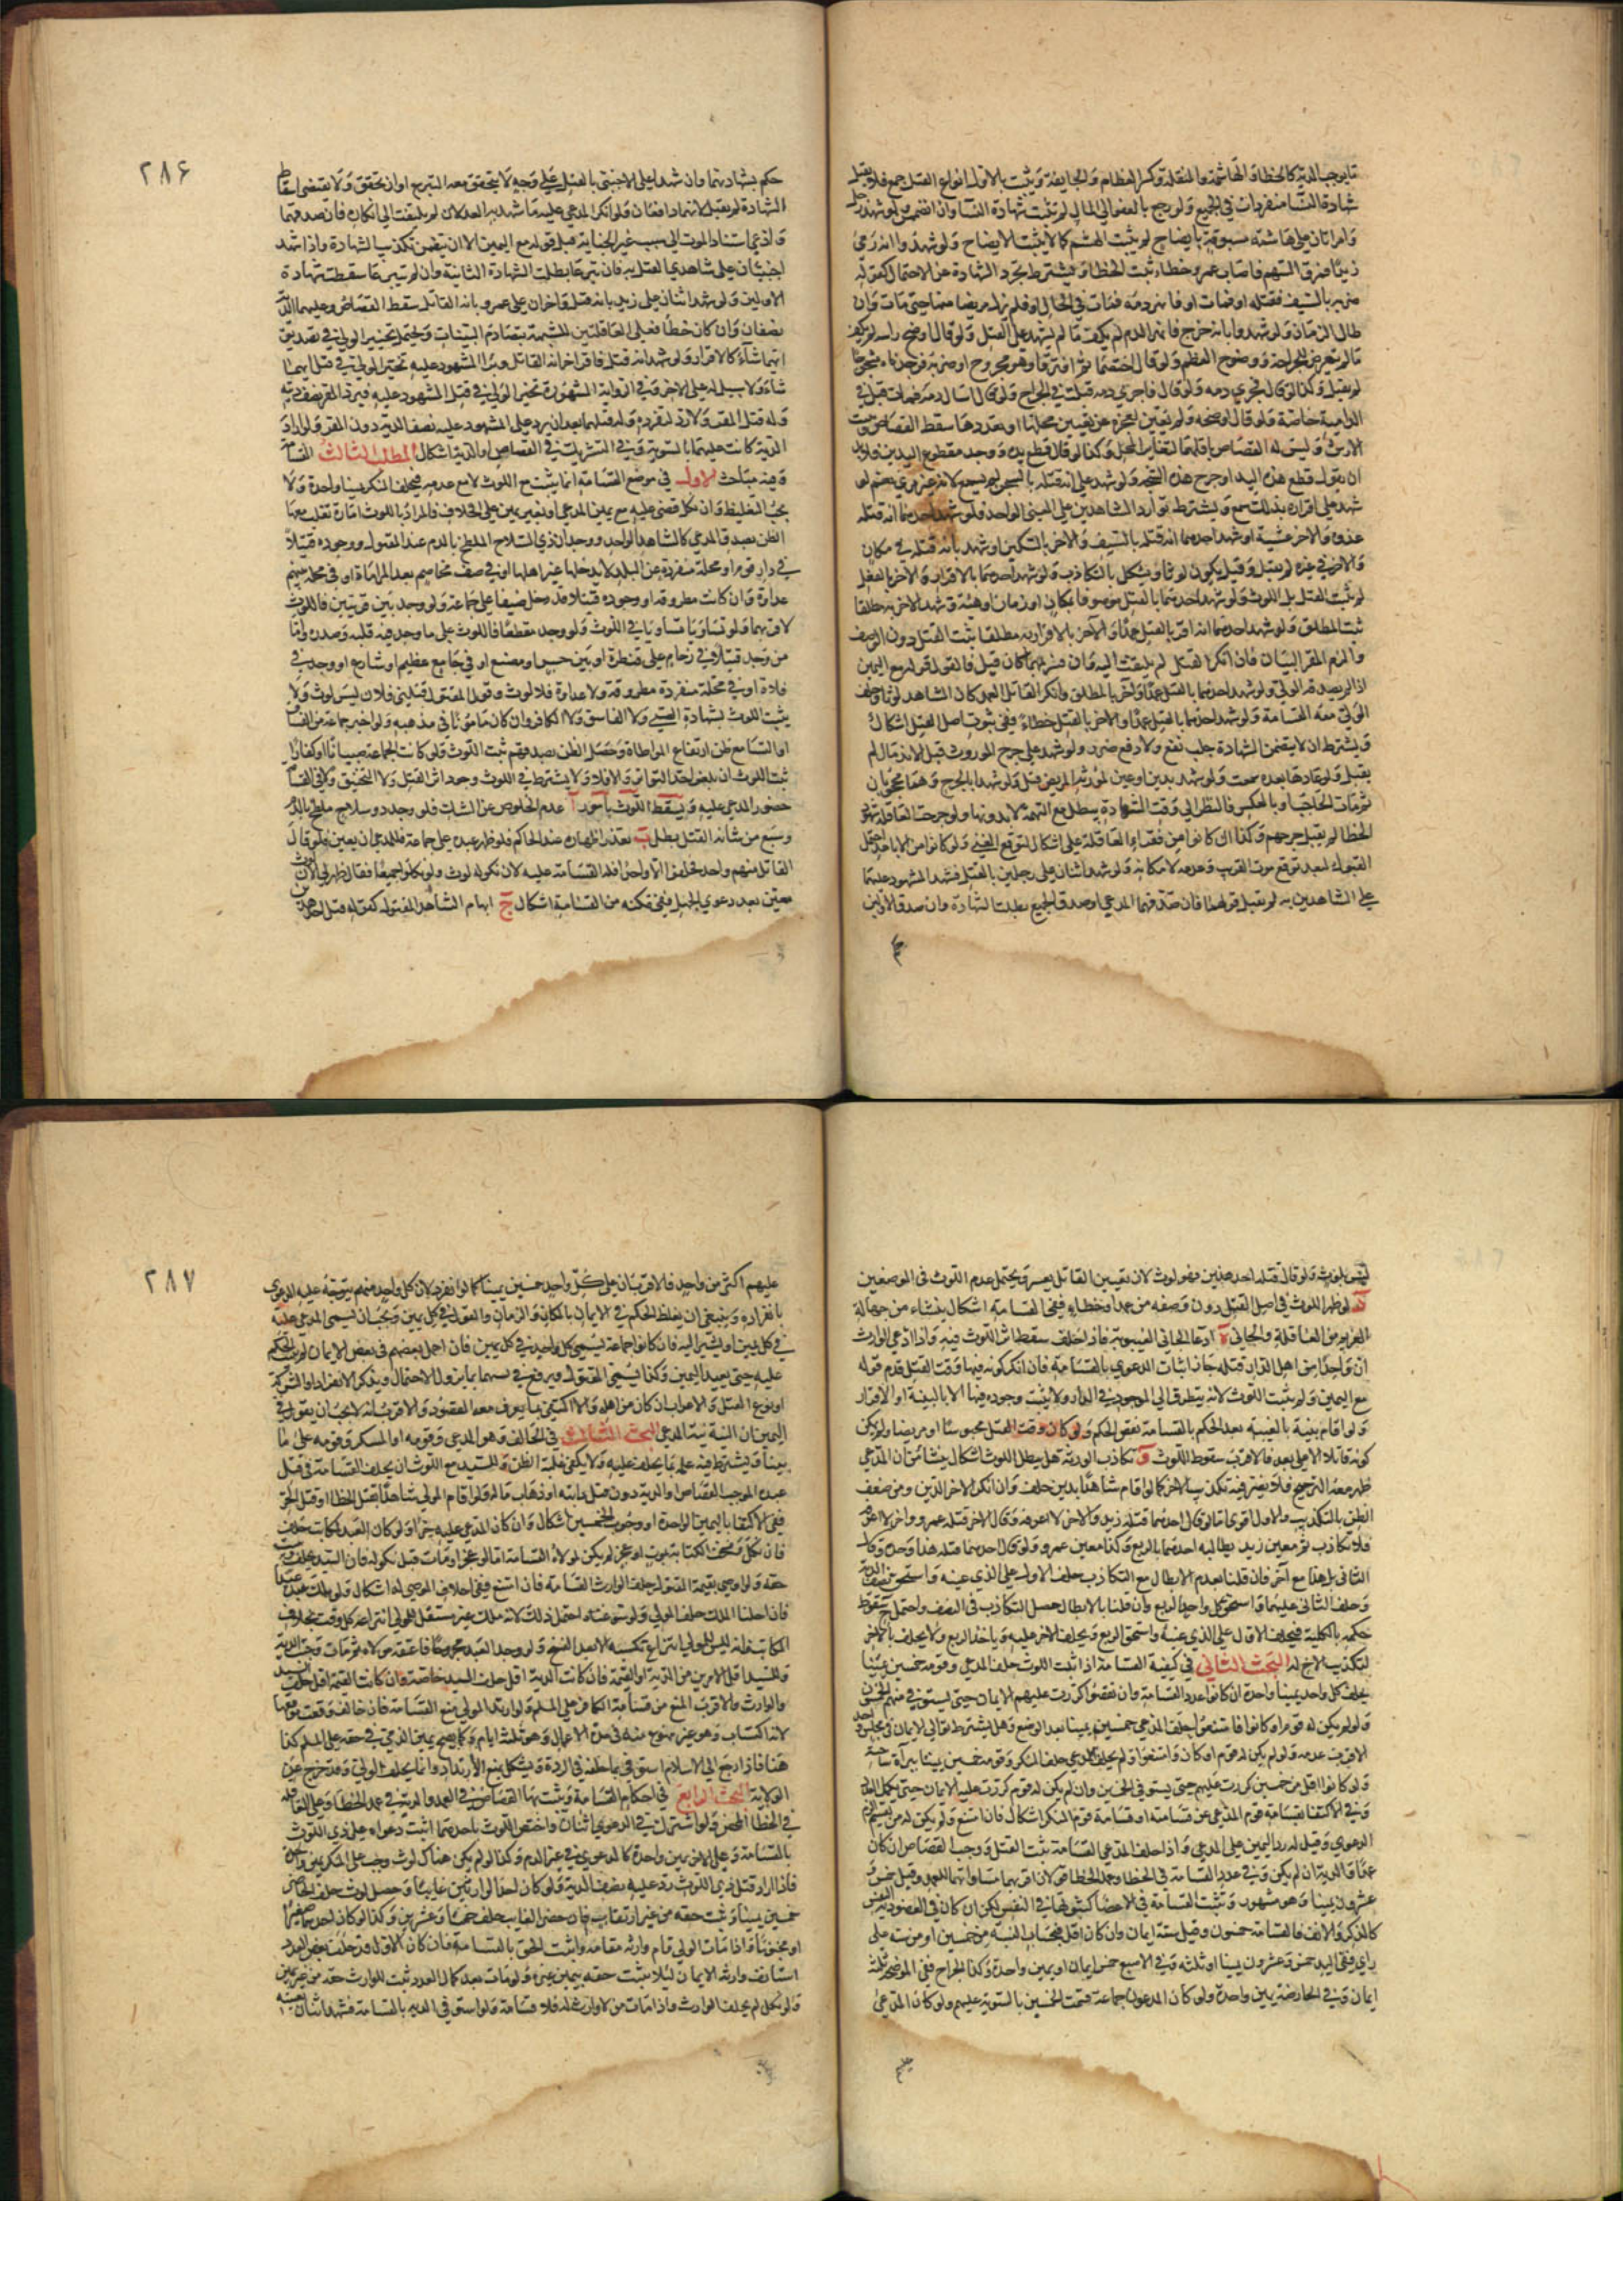 ما يوجب الدية كالخطأ والهاشمة والمنقلة وكسر العظام والجايفة ويثبت بالاول انواع القتل جمع فلا يقبل
شهادة النسا منفردات في الجميع ولو رجع بالعفو الى المال لم تثبت شهادة النسا وان انضممن ولو شهد رجل
وامراتان على هاشمة مسبوقة بايضاح لم يثبت الهشم كما لا يثبت الايضاح ولو شهدوا انه رمى
زيدا فمرق السهم فاصاب عمروا خطاء ثبت الخطأ ويشترط تجرد الشهادة عن الاحتمال كقوله
ضربه بالسيف فقتله او فمات او فانهر دمه فمات في الحال او فلم يزل مريضا منها حتى مات وان
طال الزمان ولو شهدوا بانه جرح فانهر الدم لم يكف ما لم يشهد على القتل ولو قال اوضح راسه لم يكف
ما لم يتعرض للجراحة ووضوح العظم ولو قال اختصما ثم افترقا وهو مجروح او ضربه فوجدناه مشجوجا
لم يقبل وكذا لو قال فجرى دمه ولو قال فاجرى دمه قبلت في الجراح ولو قال اسال دمه فمات قبل في
الدامية خاصة ولو قال اوضحه ولم يعين لعجزه عن تعيين محلها او تعددها سقط القصاص وثبت
الارش وليس له القصاص باقلهما لتغاير المحل وكذا لو قال قطع يده ووجد مقطوع اليدين فلا بد
ان يقول قطع هذه اليد او جرح هذه الشجة ولو شهد على انه قتله بالسحر لم يسمع لانه غير مرئي نعم لو
شهد على اقراره بذلك سمع ويشترط توارد الشاهدين على المعنى الواحد فلو شهد احدهما انه قتله
غدوة والاخر عشية او شهد احدهما انه قتله بالسيف والاخر بالسكين او شهد بانه قتله في مكان
والاخر في غيره لم يقبل وقيل يكون لوثا ويشكل بالتكاذب ولو شهد احدهما بالاقرار والاخر بالفعل
لم يثبت القتل بل اللوث ولو شهد احدهما بالقتل موصوفا بمكان او زمان او هيئة وشهد الاخر به مطلقا
ثبت المطلق ولو شهد احدهما انه اقر بالقتل عمدا والاخر بالاقرار به مطلقا يثبت القتل دون الوصف
والزم المقر البيان فان انكر القتل لم يلتفت اليه وان فسر بهما كان قبل فالقول قوله مع اليمين
اذا لم يصدقه الولي ولو شهد احدهما بالقتل عمدا والاخر بالمطلق وانكر القاتل العمد كان الشاهد لوثا وحلف
الولي معه القسامة ولو شهد احدهما بالقتل عمدا والاخر بالقتل خطاء ففي ثبوت اصل القتل اشكال
ويشترط ان لا يتضمن الشهادة جلب نفع ولا دفع ضرر ولو شهد على جرح المورث قبل الاندمال لم
يقبل ولو اعادها بعده سمعت ولو شهد بدين او عين لمورثه المريض قبل ولو شهدا بالجرح وهما محجوبان
ثم مات الحاجب او بالعكس فالنظر الى وقت الشهادة يبطل مع التهمة لا بدونها ولو جرحت العاقلة شهود
الخطا لم يقبل جرحهم وكذا ان كانوا من فقراء العاقلة على اشكال لتوقع الغنى ولو كانوا من الاباعد احتمل
القبول لبعد توقع موت القريب وعدمه لامكانه ولو شهد اثنان على رجلين بالقتل فشهد المشهود عليهما
على الشاهدين به لم يقبل قولهما فان صدقهما المدعي او صدق الجميع بطلت الشهادة وان صدق الاولين
٢٨۶
حكم بشهادتهما وان شهدا على الاجنبي بالقتل على وجه لا يتحقق معه التبرع او ان تحقق ولا يقتضي اسقاط
الشهادة لم يقبل لانهما دافعان ولو انكر المدعى عليه ما شهد به العدلان لم يلتفت الى انكاره فان صدقهما
وادعى استناد الموت الى سبب غير الجناية قبل قوله مع اليمين الا ان يتضمن تكذيب الشهادة واذا شهد
اجنبيان على شاهدي القتل به فان تبرعا بطلت الشهادة الثانية وان لم يتبرعا سقطت شهادة
الاولين ولو شهد اثنان على زيد بانه قتل واخران على عمرو بانه القاتل سقط القصاص وعليهما الدية
نصفان وان كان خطأ فعلى العاقلتين للشبهة بتصادم البينات ويحتمل تخيير الولي في تصديق
ايتهما شاء كالاقرار ولو شهد انه قتل فاقر اخر انه القاتل وبرا المشهود عليه تخير الولي في قتل ايهما
شاء ولا سبيل له على الاخر وفي الرواية المشهورة تخير الولي في قتل المشهود عليه فيرد المقر نصف ديته
وله قتل المقر ولا رد لتفرده وله قتلهما بعد ان يرد على المشهود عليه نصف الدية دون المقر ولو اراد
الدية كانت عليهما بالسوية وفي التشريك في القصاص او الدية اشكال المطلب الثالث القسامة
وفيه مباحث الاول في موضع القسامة انما يثبت مع اللوث لا مع عدمه فيحلف المنكر يمينا واحدة ولا
يجب التغليظ وان نكل قضى عليه مع يمين المدعي او بغير يمين على الخلاف فالمراد باللوث امارة تغلب معها
الظن بصدق المدعي كالشاهد الواحد ووجدان ذي السلاح الملطخ بالدم عند المقتول ووجوده قتيلا
في دار قوم او محلة منفردة عن البلد لا يدخلها غير اهلها او في صف مخاصم بعد المراماة او في محلة بينهم
عداوة وان كانت مطروقة او وجوده قتيلا قد دخل ضيفا على جماعة ولو وجد بين قريتين فاللوث
لاقربهما ولو تساويا تساويا في اللوث ولو وجد مقطعا فاللوث على ما وجد فيه قلبه وصدره واما
من وجد قتيلا في زحام على قنطرة او بئر حبس او مصنع او في جامع عظيم او شارع او وجد في
فلاة او في محلة منفردة مطروقة ولا عداوة فلا لوث وقول المقتول قتلني فلان ليس لوث ولا
يثبت اللوث بشهادة الصبي ولا الفاسق ولا الكافر وان كان مامونا في مذهبه ولو اخبر جماعة من الفساق
او النسا مع ظن ارتفاع المواطاة وحصل الظن بصدقهم ثبت اللوث ولو كانت الجماعة صبيانا او كفارا
ثبت اللوث ان بلغوا حد التواتر والا فلا ولا يشترط في اللوث وجود اثر القتل ولا التخنيق ولا في القسامة
حضور المدعى عليه ويسقط اللوث بامور آ عدم الخلوص عن الشك فلو وجد ذو سلاح ملطخ بالدم
وسبع من شانه القتل بطل ب تعذر اظهاره عند الحاكم فلو ظهر عنده على جماعة فللمدعي ان يعين فلو قال
القاتل منهم واحد فحلفوا الا واحدا فله القسامة عليه لان نكوله لوث ولو نكلوا جميعا فقال ظهر لي الان
معين بعد دعوى الجهل ففي تمكنه من القسامة اشكال ج ابهام الشاهد المقتول كقوله قتل احد هذين
ليس بلوث ولو قال قتله احد هذين فهو لوث لان تعيين القاتل يعسر ويحتمل عدم اللوث في الموضعين
د لو ظهر اللوث في اصل القتل دون وصفه من عمد او خطاء ففي القسامة اشكال ينشاء من جهالة
الغريم من العاقلة والجاني ه ادعا الجاني الغيبوبة فاذا حلف سقط اثر اللوث فيه واذا ادعى الوارث
ان واحدا من اهل الدار قتله جاز اثبات الدعوى بالقسامة فان انكر كونه فيها وقت القتل قدم قوله
مع اليمين ولم يثبت اللوث لانه يتطرق الى الموجود في الدار ولا يثبت وجوده فيها الا بالبينة او الاقرار
ولو اقام بينة بالغيبة بعد الحكم بالقسامة نقض الحكم ولو كان وقت القتل محبوسا او مريضا ولم يكن
كونه قاتلا الا على بعد فالاقرب سقوط اللوث و تكاذب الورثة هل يبطل اللوث اشكال ينشا من ان المدعي
ظهر معه الترجيح فلا يضر فيه تكذيب الاخر كما لو اقام شاهدا بدين حلف وان انكر الاخر الدين ومن ضعف
الظن بالتكذيب والاول اقوى اما لو قال احدهما قتله زيد والاخر لا اعرفه وقال الاخر قتله عمرو واخر لا اعرفه
فلا تكاذب ثم معين زيد يطالبه احدهما بالربع وكذا معين عمرو ولو قال احدهما قتله هذا وحده وقال
الثاني بل هذا مع آخر فان قلنا بعدم الابطال مع التكاذب حلف الاول على الذي عينه واستحق نصف الدية
وحلف الثاني عليهما واستحق كل واحد الربع وان قلنا بالابطال حصل التكاذب في النصف واحتمل سقوط
حكمه بالكلية فيحلف الاول على الذي عينه واستحق الربع ويحلف الاخر عليه وياخذ الربع ولا يحلف بالاخر
لتكذيب الاخ له البحث الثاني في كيفية القسامة اذا ثبت اللوث حلف المدعي وقومه خمسين يمينا
يحلف كل واحد يمينا واحدة ان كانوا عدد القسامة وان نقصوا كررت عليهم الايمان حتى يستوفى منهم الخمسون
ولو لم يكن له قوم او كانوا فامتنعوا احلف المدعي خمسين يمينا بعد الوضع وهل يشترط توالي الايمان في مجلس واحد
الاقرب عدمه ولو لم يكن له قوم او كان وامتنعوا ولم يحلف المدعي حلف المنكر وقومه خمسين يمينا ببرآة ساحته
ولو كانوا اقل من خمسين كررت عليهم حتى يستوفي الخمسين وان لم يكن له قوم كررت عليه الايمان حتى يكمل العدد
وفي الاكتفا بقسامة قوم المدعي عن قسامته او قسامة قوم المنكر اشكال فان امتنع ولم يكن له من يقسم الزم
الدعوى وقيل له رد اليمين على المدعي واذا حلف المدعي القسامة ثبت القتل ووجب القصاص ان كان
عمدا والدية ان لم يكن وفي عدد القسامة في الخطا وعمد الخطا قولان اقربهما مساواتهما للعمد وقيل خمس و
عشرون يمينا وهو مشهور ويثبت القسامة في الاعضا كثبوتها في النفس لكن ان كان في العضو دية النفس
كالذكر والانف فالقسامة خمسون وقيل ستة ايمان وان كان اقل فبحساب النسبة من خمسين او من ست على
راي ففي اليد خمس وعشرون يمينا او ثلثة وفي الاصبع خمس ايمان او يمين واحدة وكذا الجراح ففي الموضحة ثلث
ايمان وفي الحارصة يمين واحدة ولو كان المدعون جماعة قسمت الخمسين بالسوية عليهم ولو كان المدعى
٢٨٧
عليهم اكثر من واحد فالاقرب ان على كل واحد خمسين يمينا كما لو انفرد لان كل واحد منهم يتوجه عليه الدعوى
بانفراده وينبغي ان يغلظ الحكم في الايمان بالمكان والزمان والقول في كل يمين ويجب ان يسمى المدعى عليه
في كل يمين او يشير اليه فان كانوا جماعة يسمى كل واحد في كل يمين فان اهمل بعضهم في بعض الايمان لم يثبت الحكم
عليه حتى يعيد اليمين وكذا يسمي المقتول ويرفع في نسبهما بما يزول الاحتمال ويذكر الانفراد او الشركة
او نوع القتل والاعراب ان كان من اهله والا اكتفي بما يعرف معه المقصود والاقرب انه لا يجب ان يقول في
اليمين ان النية نية المدعي البحث الثالث في الحالف وهو المدعي وقومه او المنكر وقومه على ما
بينا ويشترط فيه علمه بما يحلف عليه ولا يكفي غلبة الظن وللسيد مع اللوث ان يحلف القسامة في قتل
عبده الموجب للقصاص او الدية دون قتل دابته او ذهاب ماله ولو اقام المولى شاهدا بقتل الخطا او قتل الحر
ففي الاكتفا باليمين الواحدة او وجوب الخمسين اشكال وان كان المدعى عليه حرا ولو كان العبد لمكاتب حلف
فان نكل وفسخت الكتابة بموت او عجز لم يكن لمولاه القسامة اما لو عجز او مات قبل نكوله فان السيد يحلف ويثبت
حقه ولو اوصى بقيمة المقتول حلف الوارث القسامة فان امتنع ففي احلاف الموصى له اشكال ولو ملك عبده عبدا
فان احلنا الملك حلف المولى ولو سوغناه احتمل ذلك لانه ملك غير مستقل للمولى انتزاعه كل وقت بخلاف
المكاتب فانه ليس للمولى انتزاع تكسبه الا بعد الفسخ ولو وجد العبد مجروحا فاعتقه مولاه ثم مات وجبت الدية
وللسيد اقل الامرين من الدية او القيمة فان كانت الدية اقل حلف السيد خاصة وان كانت القيمة اقل حلف السيد
والوارث والاقرب المنع من قسامة الكافر على المسلم ولو ارتد المولى منع القسامة فان خالف وقعت موقعها
لانه اكتساب وهو غير ممنوع منه في مدة الامهال وهو ثلثة ايام وكما يصح يمين الذمي في حقه على المسلم كذا
هنا فاذا رجع الى الاسلام استوفى بما حلفه في الردة ويشكل بمنع الارتداد وانما يحلف الولي وقد خرج عن
الولاية البحث الرابع في احكام القسامة ويثبت بها القصاص في العمد والدية في عمد الخطا وعلى العاقلة
في الخطا المحض ولو اشترك في الدعوى اثنان واختص اللوث باحدهما اثبت دعواه على ذي اللوث
بالقسامة وعلى الاخر يمين واحدة كالدعوى في غير الدم وكذا لو لم يكن هناك لوث وجب على المنكر يمين واحدة
فاذا اراد قتل ذي اللوث رد عليه نصف الدية ولو كان احد الوارثين غايبا وحصل لوث حلف الحاضر
خمسين يمينا ويثبت حقه من غير ارتقاب فان حضر الغايب حلف خمسا وعشرين وكذا لو كان احدهما صغيرا
او مجنونا واذا مات الولي قام وارثه مقامه واثبت الحق بالقسامة فان كان الاول قد حلف بعض العدد
استانف وارثه الايمان ليلا يثبت حقه بيمين غيره ولو مات بعد كمال العدد ثبت للوارث حقه من غير يمين
ولو نكل لم يحلف الوارث واذا مات من لا وارث له فلا قسامة ولو استوفى الدية بالقسامة فشهد اثنان بغيبته